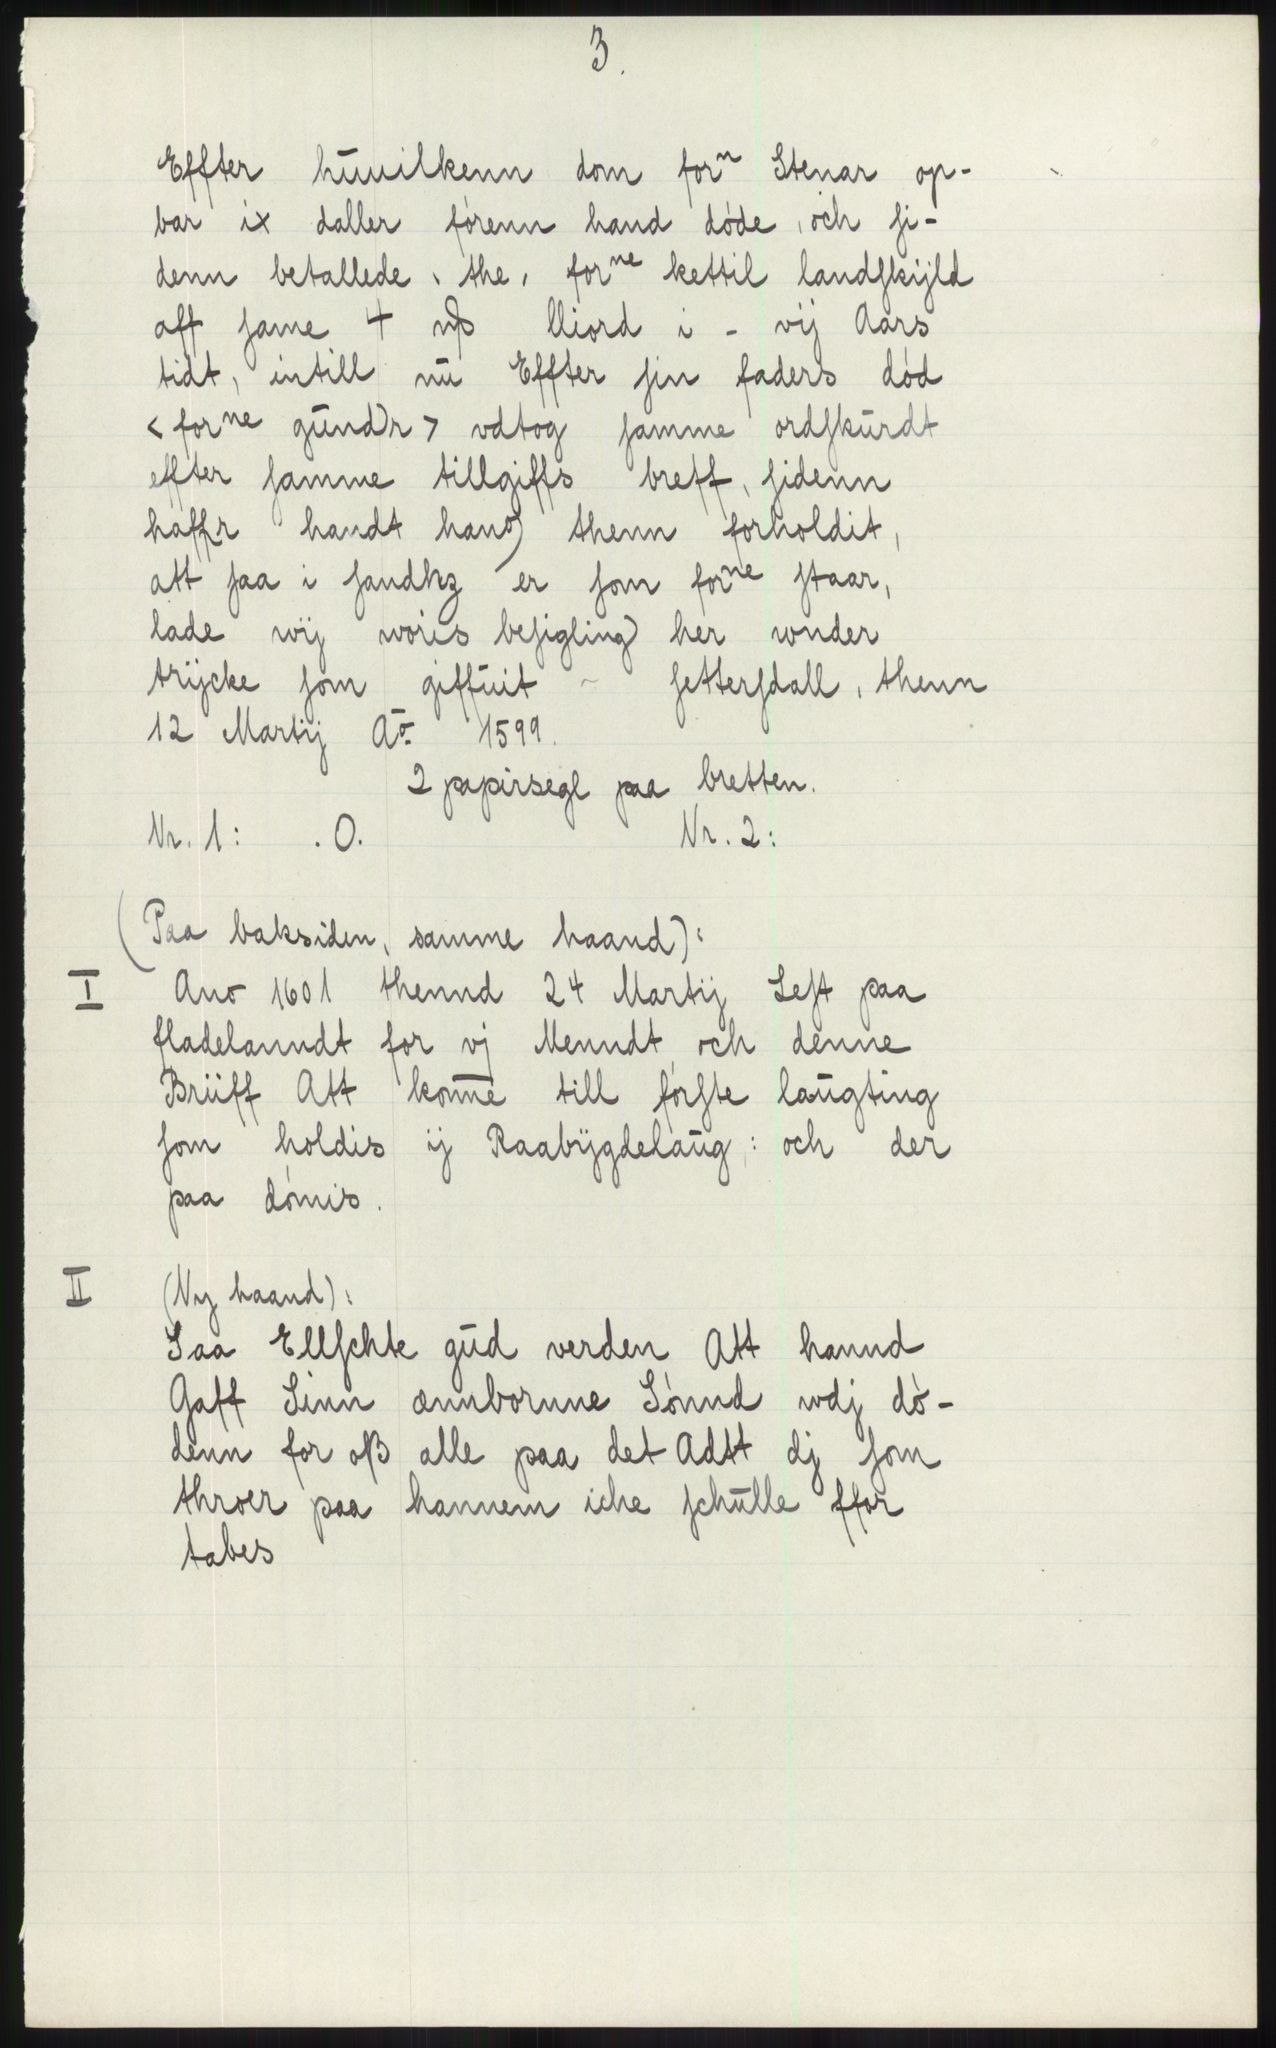 3.
Effter huuilkenn dom forⁿ Stenar op-
bar ix daller förenn hand döde, och si-
denn betallede, the, forⁿᵉ kettil landskijld
aff same 4 mß Uiord i - vij Aars
tidt, intill nu Effter sin faders död
<forⁿᵉ gundr> vdtog samme ordskurdt
effter samme tillgiffs breff, sidenn
haffr handt hanō thenn forholdit,
att saa i sandhz er som forⁿᵉ staar,
lade wij woris besigling her wnder
trijcke som giffuit ~ settersdall, thenn
12 Martij Aō. 1599.
2 papirsegl paa bretten.
Nr. 1: .O. Nr. 2:
(Paa baksiden, samme haand):
I Ano 1601 thennd 24 Martij Sest paa
fladelanndt for vj Menndt och denne
Briiff Att kom̅e till förste laugting
som holdis ij Raabijgdelaug: och der
paa dömis.
II (Ny haand):
Saa Ellschte gud verden Att hannd
Gaff Sinn ænnbornne Sönnd wdj dö-
denn for oß alle paa det Adtt dj som
throer paa hannem iche schulle ffor
tabes